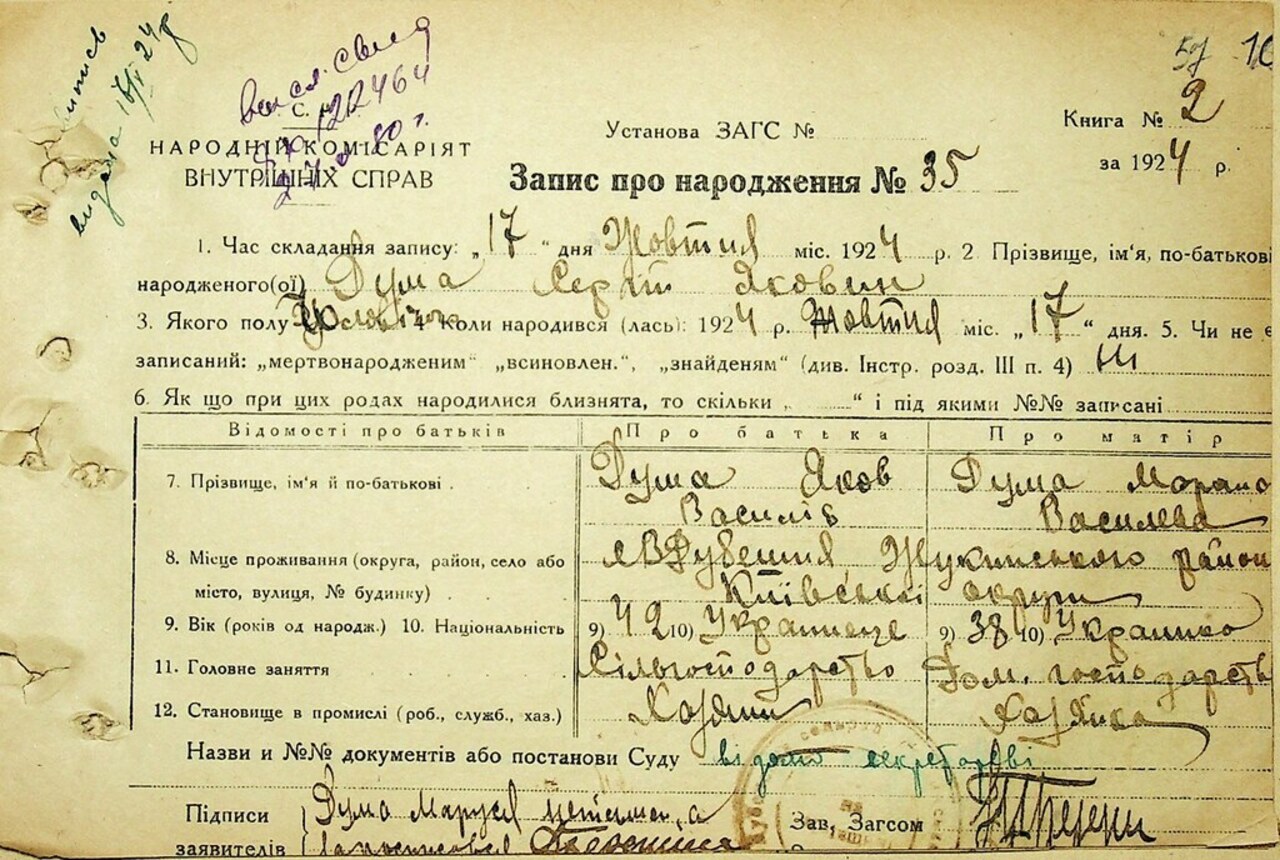 57 10
випись
видана
С.
НАРОДНІЙ КОМІСАРІЯТ
ВНУТРІШНІХ СПРАВ
Установа ЗАГС №
Книга № 2
за 1924 р.
Запис про народження № 35
1. Час складання запису: „17“ дня Жовтня міс. 1924 р. 2 Прізвище, ім'я, по-батькові
народженого(ої) Дума Сергій Яковин
3. Якого полу Чоловічого 4 Коли народився (лась): 1924 р. Жовтня міс. „17“ дня. 5. Чи не є
записаний: „мертвонародженим“ „всиновлен.“, „знайденям“ (див. Інстр. розд. III п. 4) Ні
6. Як що при цих родах народилися близнята, то скільки „ “ і під якими №№ записані
Відомості про батьків Про батька Про матір
7. Прізвище, ім'я й по-батькові Дума Яков Дума
Василів Василева
8. Місце проживання (округа, район, село або Жукинського район
місто, вулиця, № будинку) Київської округи
9. Вік (років од народж.) 10. Національність 9) 42 10) Украинець 9) 38 10) Украинка
11. Головне заняття Сільгосподарство Дом. господарств
12. Становище в промислі (роб., служб., хаз.) Хозяин Хозяйка
Назви и №№ документів або постанови Суду відомо секретареві
Підписи Дума Маруся неписмен, а
заявителів Зав, Загсом